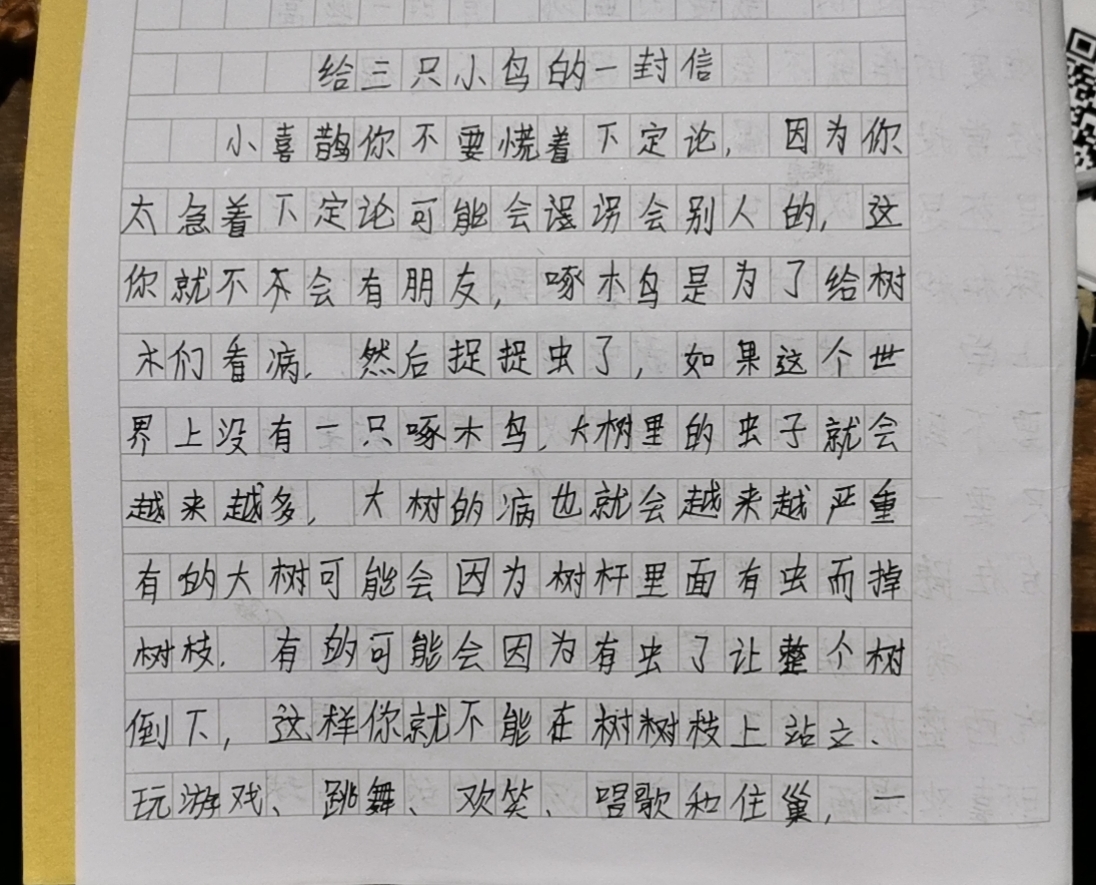 给三只小鸟的一封信
小喜鹊你不要慌着下定论，因为你
太急着下定论可能会误误会别人的，这
你就不不会有朋友，啄木鸟是为了给树
木们看病．然后捉捉虫了，如果这个世
界上没有一只啄木鸟，大树里的虫子就会
越来越多，大树的病也就会越来越严重
有的大树可能会因为树杆里面有虫而掉
树枝．有的可能会因为有虫了让整个树
倒下，这样你就不能在树树枝上站立、
玩游戏、跳舞、欢笑、唱歌和住巢，一